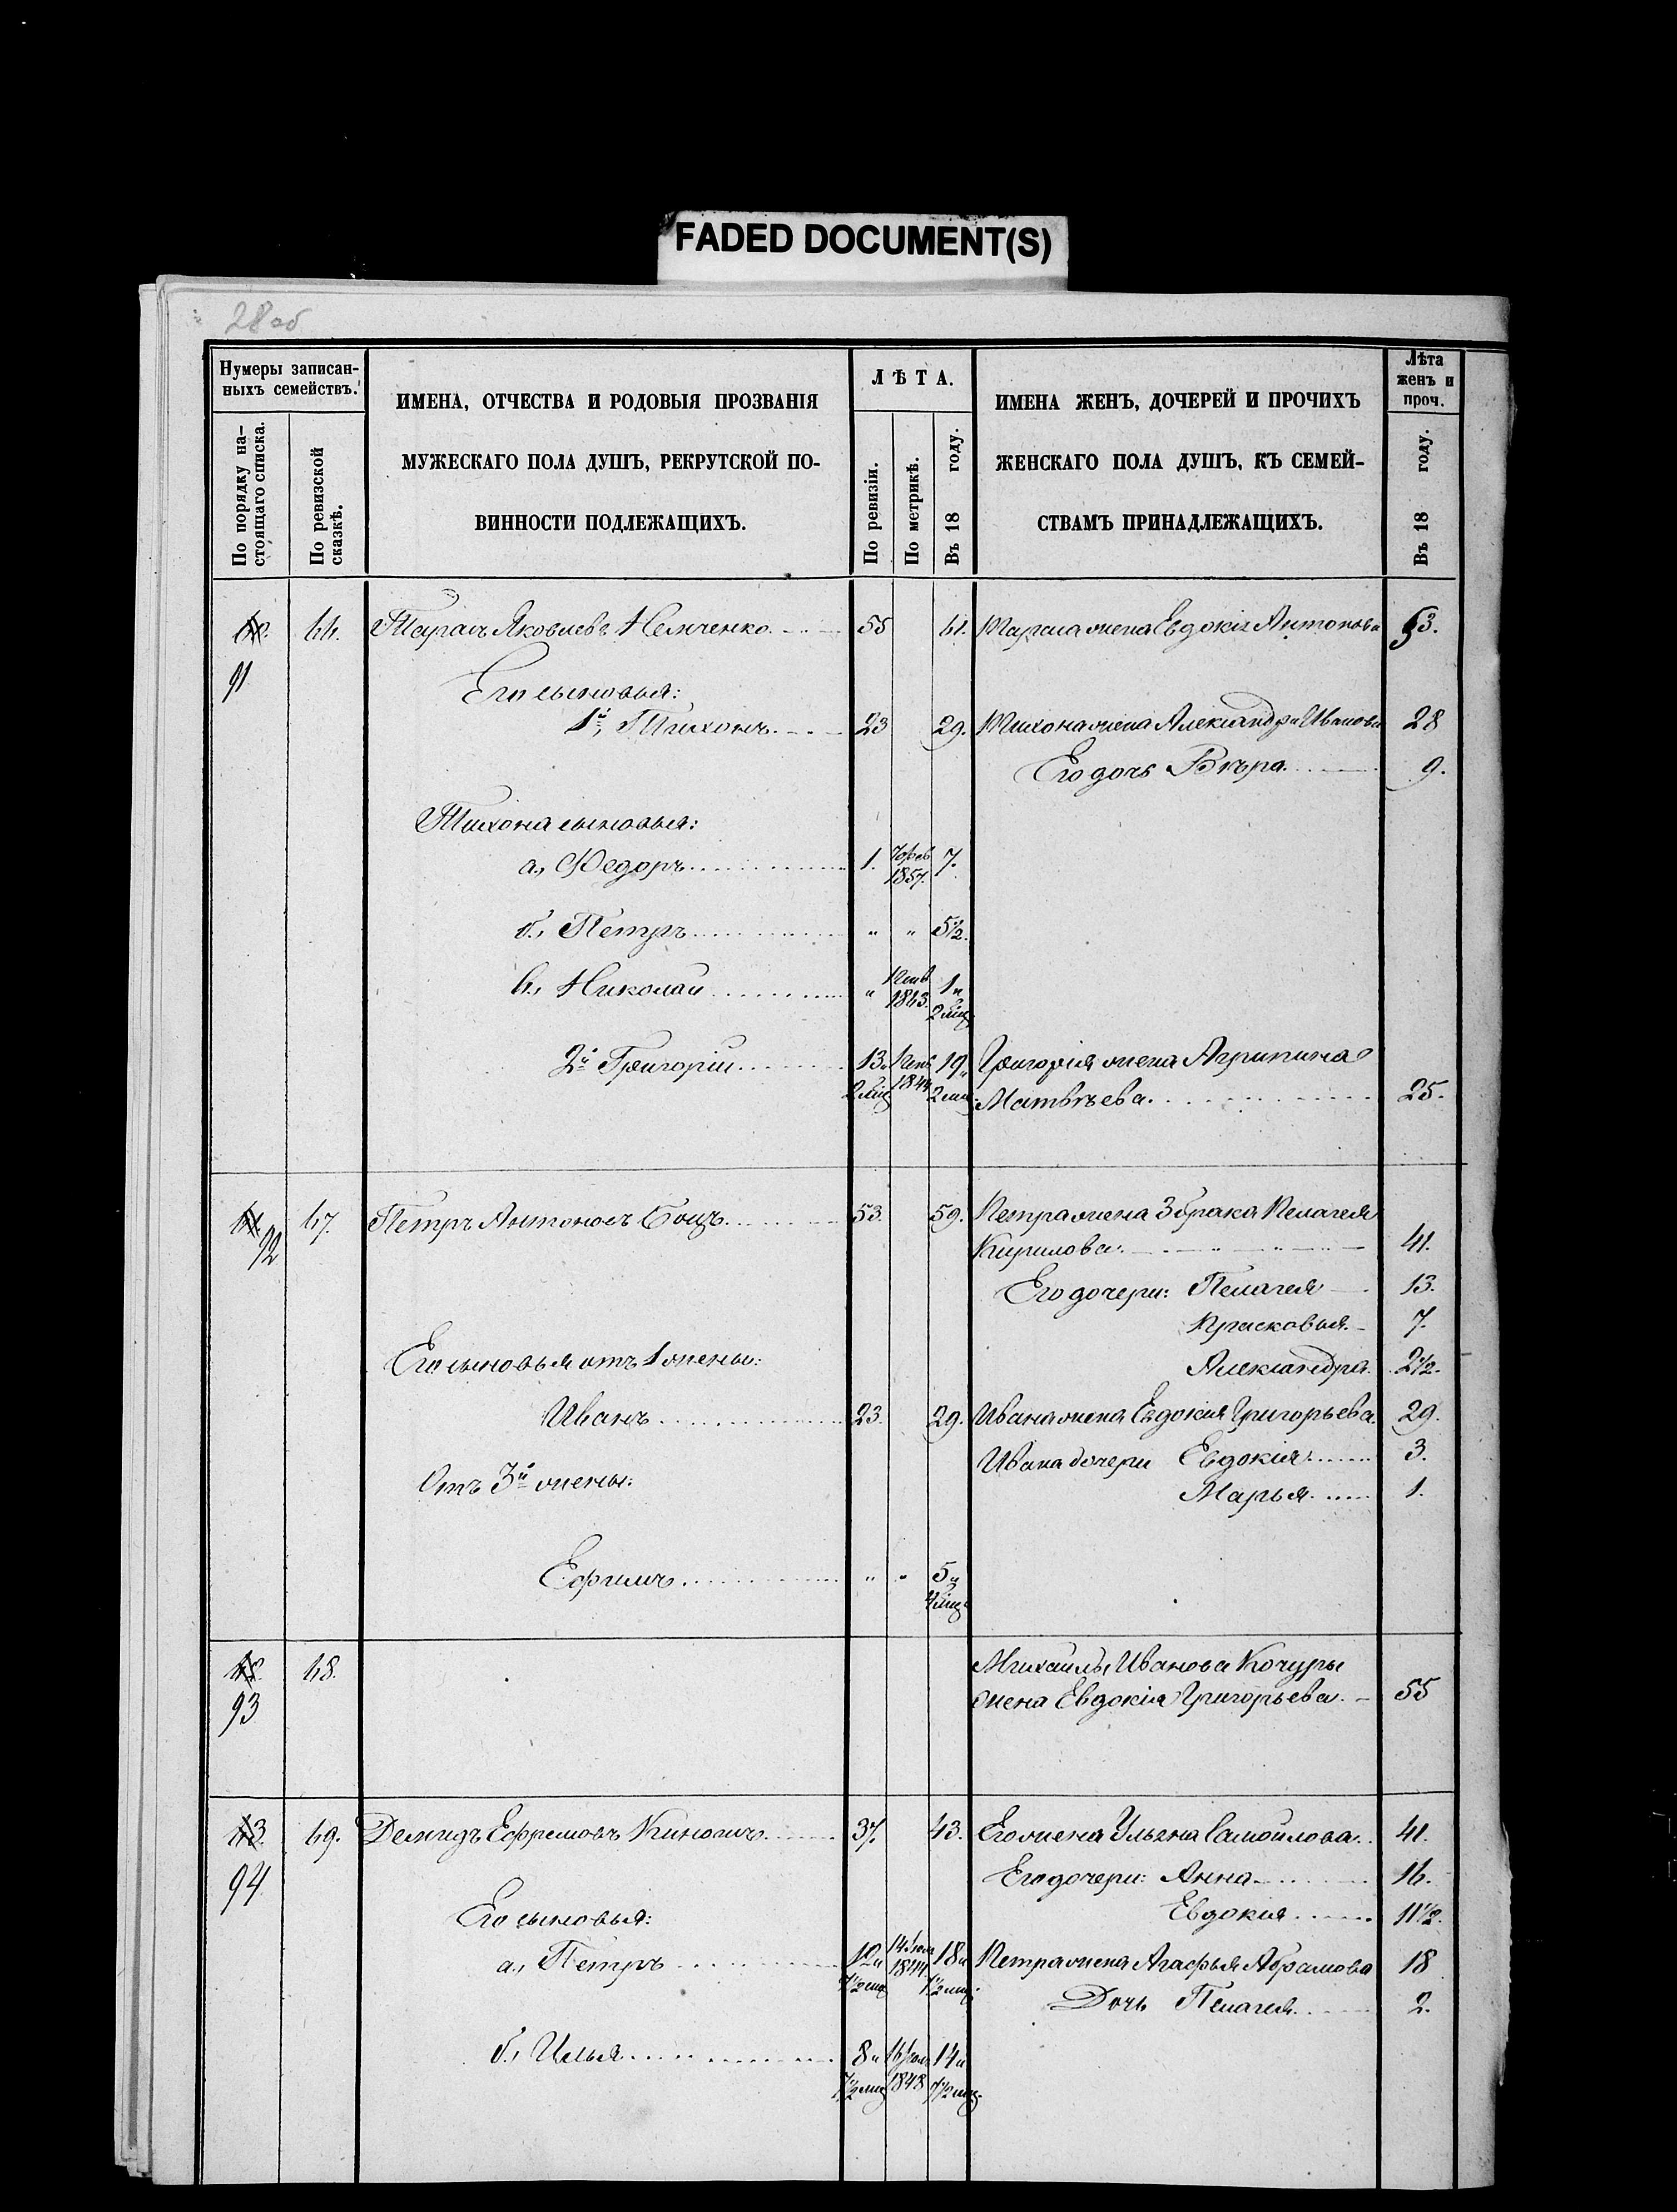 FADED DOCUMENT(S)
28об
Нумеры записан-
ныхъ семействъ.
По порядку на-
стоящаго списка.
По ревизской
сказкѣ.
ИМЕНА, ОТЧЕСТВА И РОДОВЫЯ ПРОЗВАНІЯ
МУЖЕСКАГО ПОЛА ДУШЪ, РЕКРУТСКОЙ ПО-
ВИННОСТИ ПОДЛЕЖАЩИХЪ.
ЛѢТА.
По ревизіи.
По метрикѣ.
Въ 18 году.
ИМЕНА ЖЕНЪ, ДОЧЕРЕЙ И ПРОЧИХЪ
ЖЕНСКАГО ПОЛА ДУШЪ, КЪ СЕМЕЙ-
СТВАМЪ ПРИНАДЛЕЖАЩИХЪ.
Лѣта
женъ и
проч.
Въ 18 году.
91 66. Тарасъ Яковлевъ Немченко 55 61. Тараса жена Евдокія Антонова 53.
Его сыновья:
1й, Тихонъ 23 29. Тихона жена Александра Иванова 28
Его дочь Вѣра 9.
Тихона сыновья:
а., Федоръ 1. 7 фев 1857. 7.
б., Петръ " " 5½.
в., Николай " 1863. 1 и 2 мѣц.
2й Григорій 13 и 2 мѣц 1844 19 и 2 мѣц Григорія жена Агрипина
Матвѣева 25.
92 67. Петръ Антоновъ 53. 59. Петра жена 3 брака Пелагея
Кирилова 41.
Его дочери: Пелагея 13.
Прасковья 7.
Его сыновья отъ 1 жены: Александра 2½.
Иванъ 23. 29. Ивана жена Евдокия Григорьева 29.
Ивана дочери Евдокія 3.
Отъ 3й жены: Марья 1.
Ефимъ " " 5 и 4 мѣц
93 68. Михаила Иванова Кочуры
жена Евдокія Григорьева 55
94 69. Демидъ Ефремовъ 37. 43. Его жена Ульяна Самойлова 41.
Его дочери: Анна 16.
Его сыновья: Евдокия 11½.
а., Петръ 12 и 1844 18 и Петра жена Агафья Абрамова 18
Дочь Пелагея 2.
б., Илья 8 и 1848 14 и